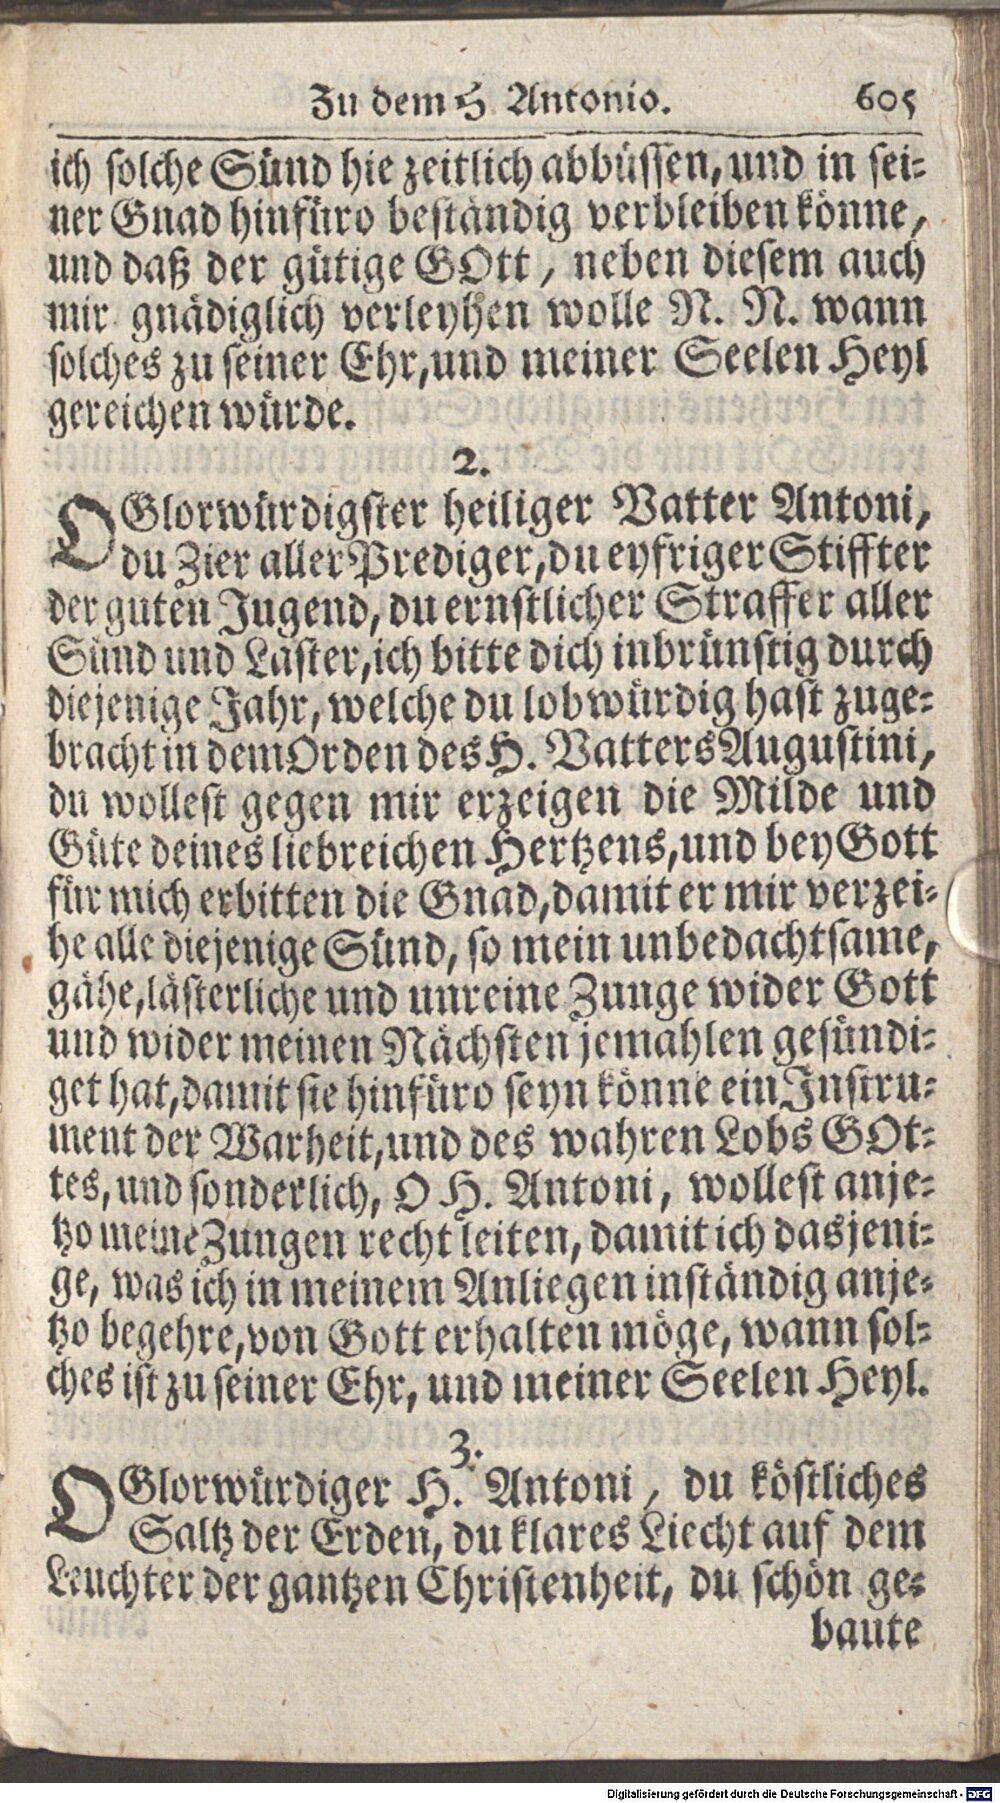 Zu dem H Antonio. 605
ich solche Sünd hie zeitlich abbüssen, und in sei-
ner Gnad hinfüro beständig verbleiben könne,
und daß der gütige GOtt, neben diesem auch
mir gnädiglich verleyhen wolle N. N. wann
solches zu seiner Ehr, und meiner Seelen Heyl
gereichen würde.
2.
O Glorwürdigster heiliger Vatter Antoni,
du Zier aller Prediger, du eyfriger Stiffter
der guten Jugend, du ernstlicher Straffer aller
Sünd und Laster, ich bitte dich inbrünstig durch
diejenige Jahr, welche du lobwürdig hast zuge-
bracht in dem Orden des H. Vatters Augustini,
du wollest gegen mir erzeigen die Milde und
Güte deines liebreichen Hertzens, und bey Gott
für mich erbitten die Gnad, damit er mir verzei-
he alle diejenige Sünd, so mein unbedachtsame,
gähe, lästerliche und unreine Zunge wider Gott
und wider meinen Nächsten jemahlen gesündi-
get hat, damit sie hinfüro seyn könne ein Instru-
ment der Warheit, und des wahren Lobs GOt-
tes, und sonderlich, O H. Antoni, wollest anje-
tzo meine Zungen recht leiten, damit ich dasjeni-
ge, was ich in meinem Anliegen inständig anje-
tzo begehre, von Gott erhalten möge, wann sol-
ches ist zu seiner Ehr, und meiner Seelen Heyl.
3.
O Glorwürdiger H. Antoni, du köstliches
Saltz der Erden, du klares Liecht auf dem
Leuchter der gantzen Christenheit, du schön ge-
baute
Digitalisierung gefördert durch die Deutsche Forschungsgemeinschaft - DFG